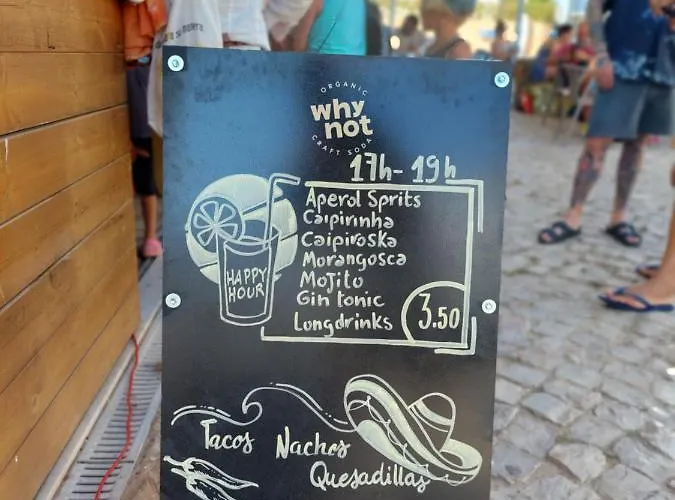 ORGANIC
why
not
CRAFT SODA
17h-19h
Aperol Sprits
Caipirinha
Caipiroska
Morangosca
Mojito
Gin tonic
Longdrinks
3.50
HAPPY
HOUR
Tacos
Nachos
Quesadillas